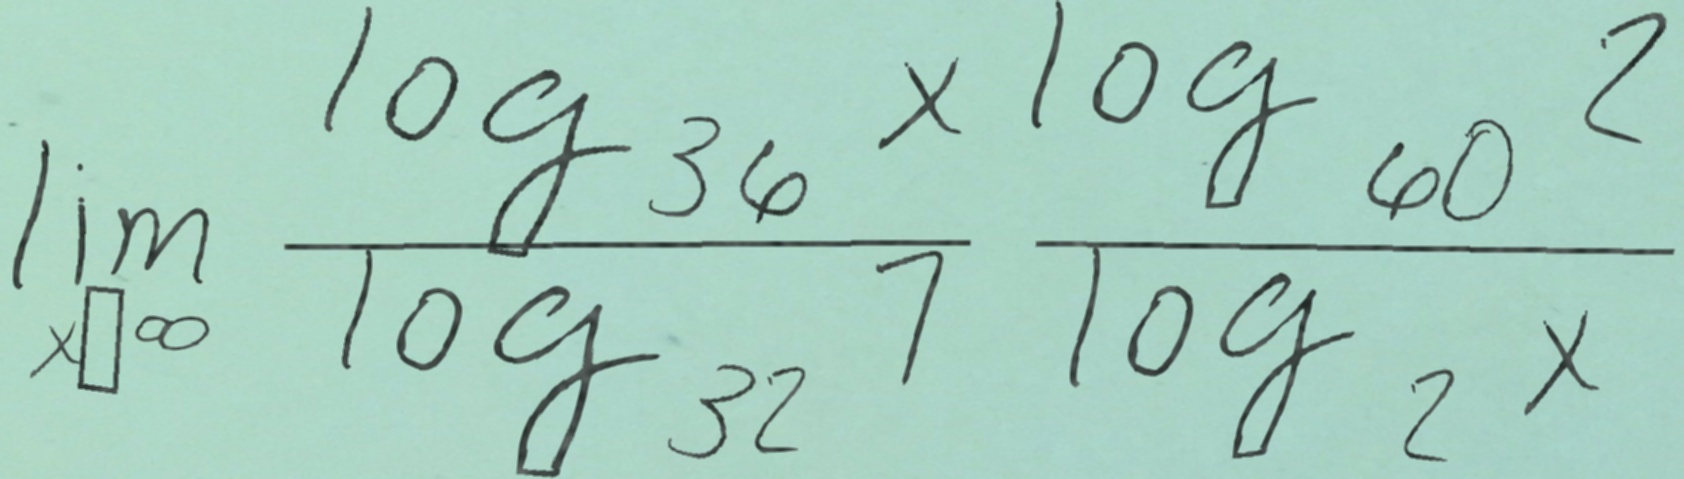 lim x▯∞ log₃₆ x / log₃₂ 7 log₆₀ 2 / log₂ x